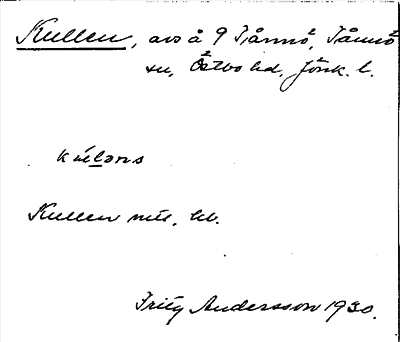 Kullen, avs å 9 Tånnö, Tånnö
sn, Östbo hd, Jönk. l.
kúləns
Kullen mts. hl.
Fritz Andersson 1930.